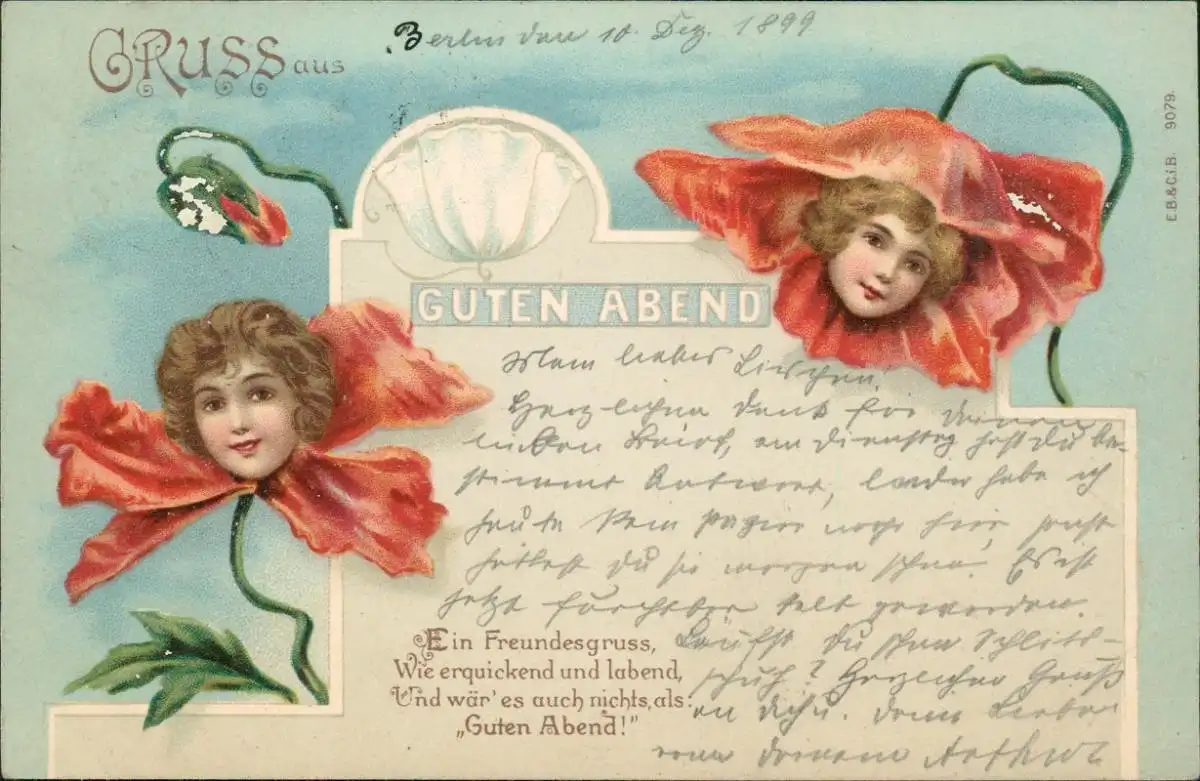 GRUSS aus
Berlin den 10. Dez. 1899
E.B.&C.i.B. 9079.
GUTEN ABEND
Mein liebes Lieschen!
Herzlichen Dank für Deinen
lieben Brief, am Dienstag hast Du be-
stimmt Antwort, leider habe ich
heute kein Papier mehr hier, sonst
hättest Du sie morgen schon. Es ist
jetzt furchtbar kalt geworden.
Läufst Du schon Schlitt-
schuh? Herzlichen Gruß
an Dich. Dein Lieber
von Deinem Arthur
Ein Freundesgruss,
Wie erquickend und labend,
Und wär' es auch nichts, als:
„Guten Abend!"